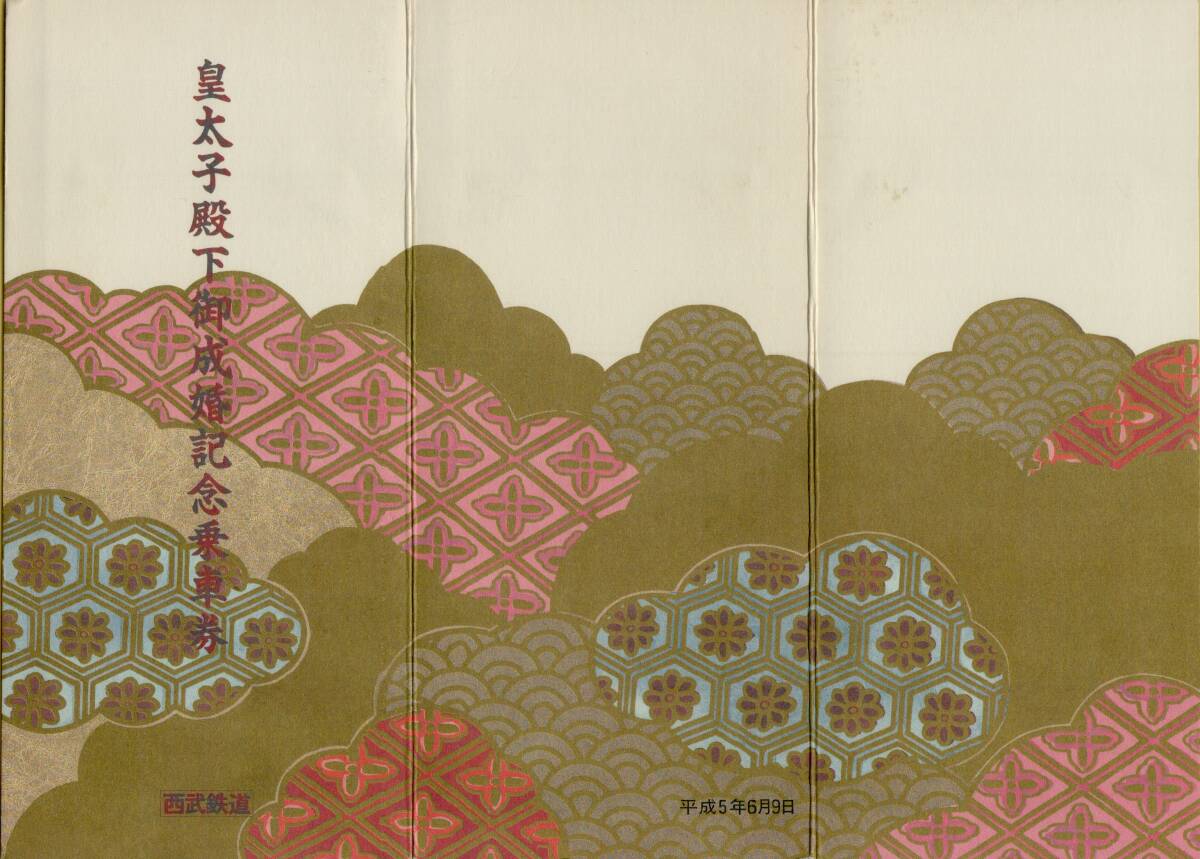 皇太子殿下御成婚記念乗車券
西武鉄道
平成5年6月9日